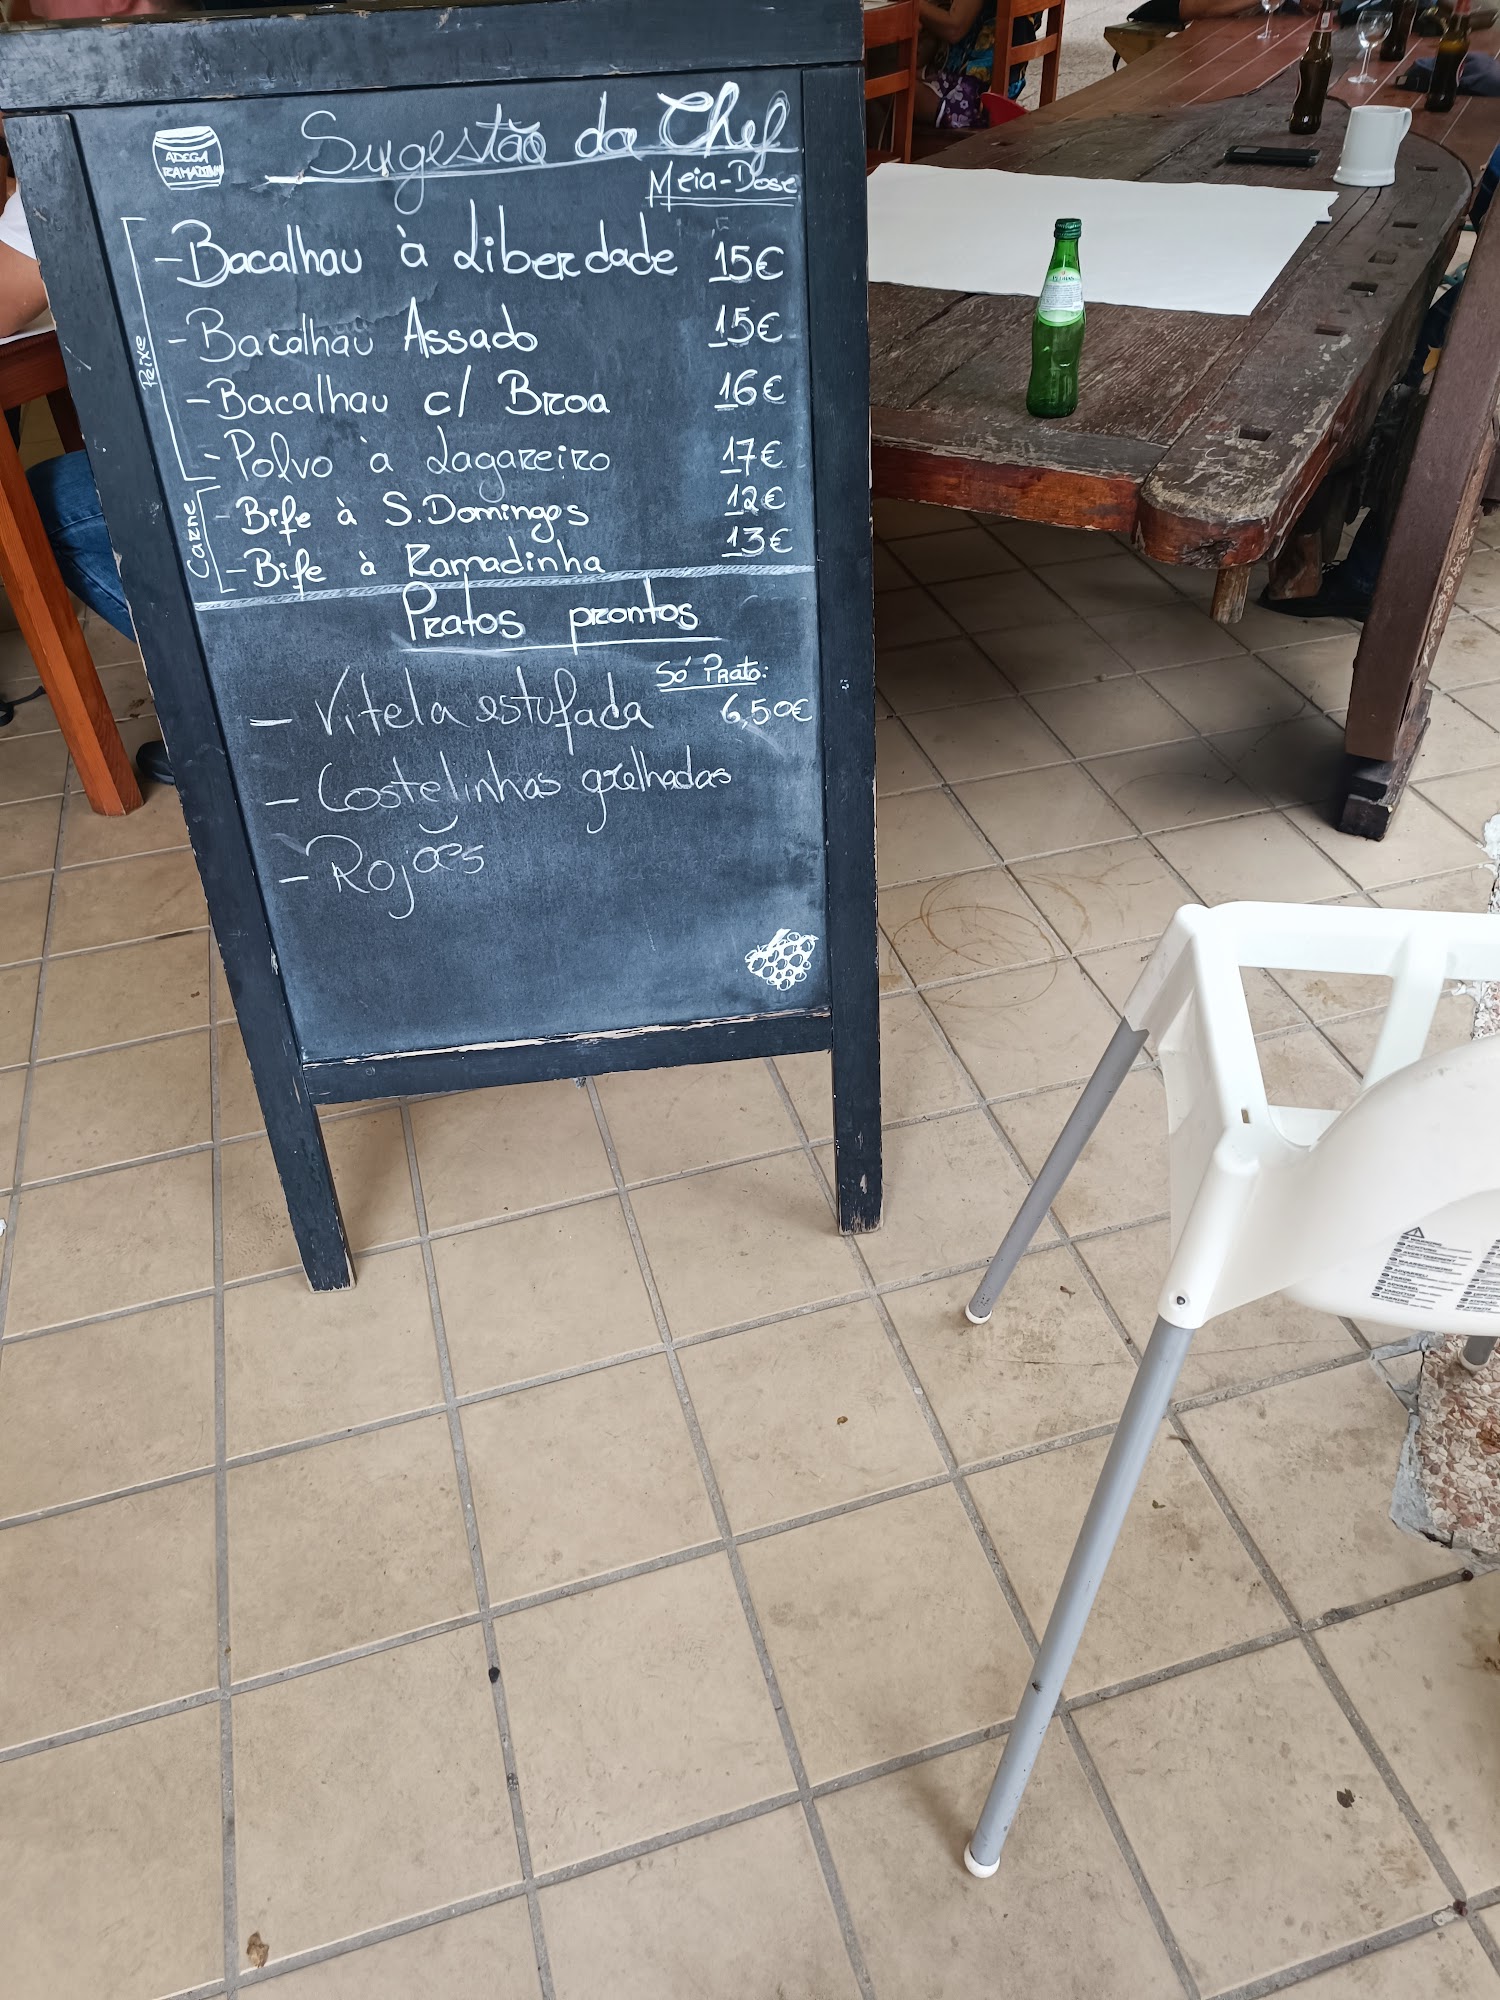 ADEGA
RAMADINHA
Sugestão da Chef
Meia-Dose
Peixe
- Bacalhau à Liberdade 15€
- Bacalhau Assado 15€
- Bacalhau c/ Broa 16€
- Polvo à Lagareiro 17€
Carne
- Bife à S. Domingos 12€
- Bife à Ramadinha 13€
Pratos prontos
Só Prato:
- Vitela estufada 6,50€
- Costelinhas grelhadas
- Rojões